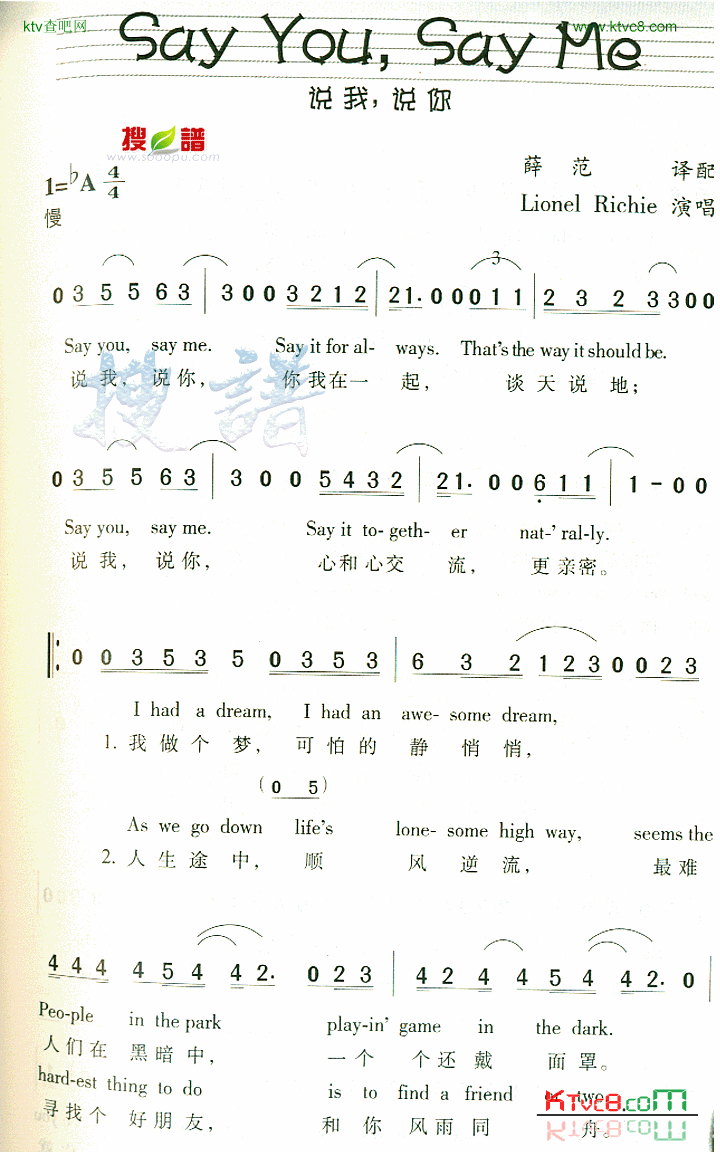 ktv查吧网 www.ktvc8.com
Say You, Say Me
说我，说你
搜谱
www.sooopu.com
1=♭A 4/4
薛 范 译配
慢
Lionel Richie 演唱
3
0 3 5 5 6 3 | 3 0 0 3 2 1 2 | 2 1. 0 0 0 1 1 | 2 3 2 3 3 0 0
Say you, say me. Say it for al- ways. That's the way it should be.
说 我， 说 你， 你 我 在 一 起， 谈 天 说 地；
搜譜
0 3 5 5 6 3 | 3 0 0 5 4 3 2 | 2 1. 0 0 6 1 1 | 1 - 0 0
Say you, say me. Say it to- geth- er nat-' ral-ly.
说 我， 说 你， 心 和 心 交 流， 更 亲 密。
‖: 0 0 3 5 3 5 0 3 5 3 | 6 3 2 1 2 3 0 0 2 3
I had a dream, I had an awe- some dream,
1. 我 做 个 梦， 可 怕 的 静 悄 悄，
( 0 5 )
As we go down life's lone- some high way, seems the
2. 人 生 途 中， 顺 风 逆 流， 最 难
4 4 4 4 5 4 4 2. 0 2 3 | 4 2 4 4 5 4 4 2. 0
Peo-ple in the park play-in' game in the dark.
人 们 在 黑 暗 中， 一 个 个 还 戴 面 罩。
hard-est thing to do is to find a friend or two
寻 找 个 好 朋 友， 和 你 风 雨 同 舟。
KTvc8.com